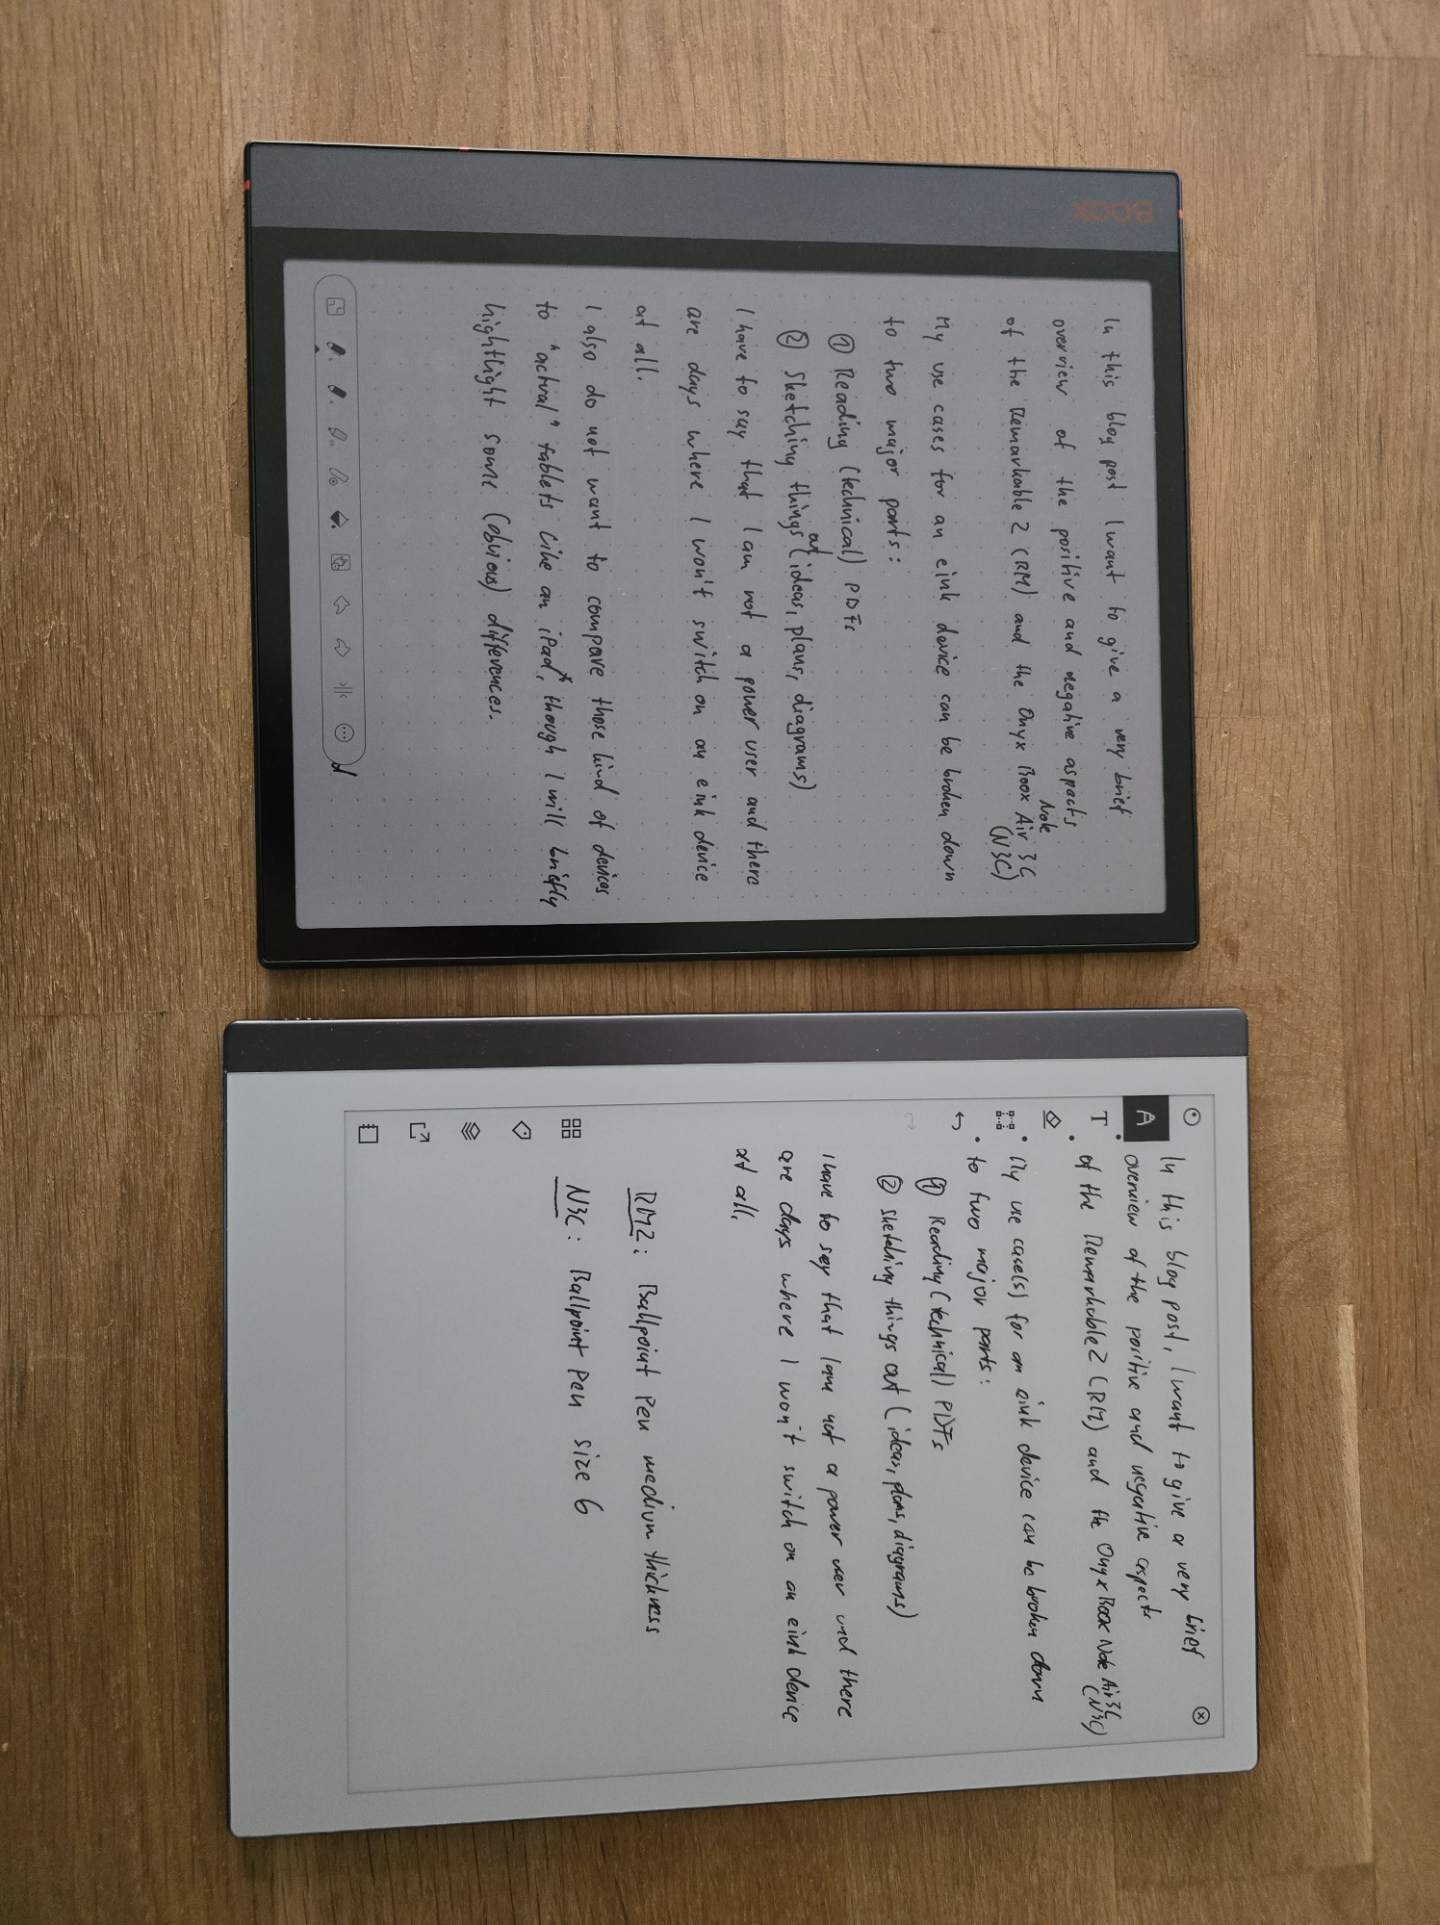 BOOX
In this blog post I want to give a very brief
overview of the positive and negative aspects
of the Remarkable 2 (RM) and the Onyx Boox Note Air 3C
(N3C)
My use cases for an eink device can be broken down
to two major parts:
① Reading (technical) PDFs
② Sketching things out (ideas, plans, diagrams)
I have to say that I am not a power user and there
are days where I won't switch on an eink device
at all.
I also do not want to compare those kind of devices
to "actual" tablets like an iPad*, though I will briefly
hightlight some (obvious) differences.
In this blog post, I want to give a very brief
overview of the positive and negative aspects
of the Remarkable 2 (RM) and the Onyx Boox Note Air 3C
(N3C)
My use case(s) for an eink device can be broken down
to two major parts:
① Reading (technical) PDFs
② Sketching things out (ideas, plans, diagrams)
I have to say that I am not a power user and there
are days where I won't switch on an eink device
at all.
RM2: Ballpoint Pen medium thickness
N3C: Ballpoint Pen size 6